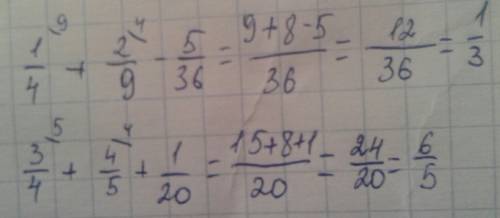 1/4^9 + 2/9^4 - 5/36 = (9+8-5)/36 = 12/36 = 1/3
3/4^5 + 4/5^4 + 1/20 = (15+8+1)/20 = 24/20 = 6/5